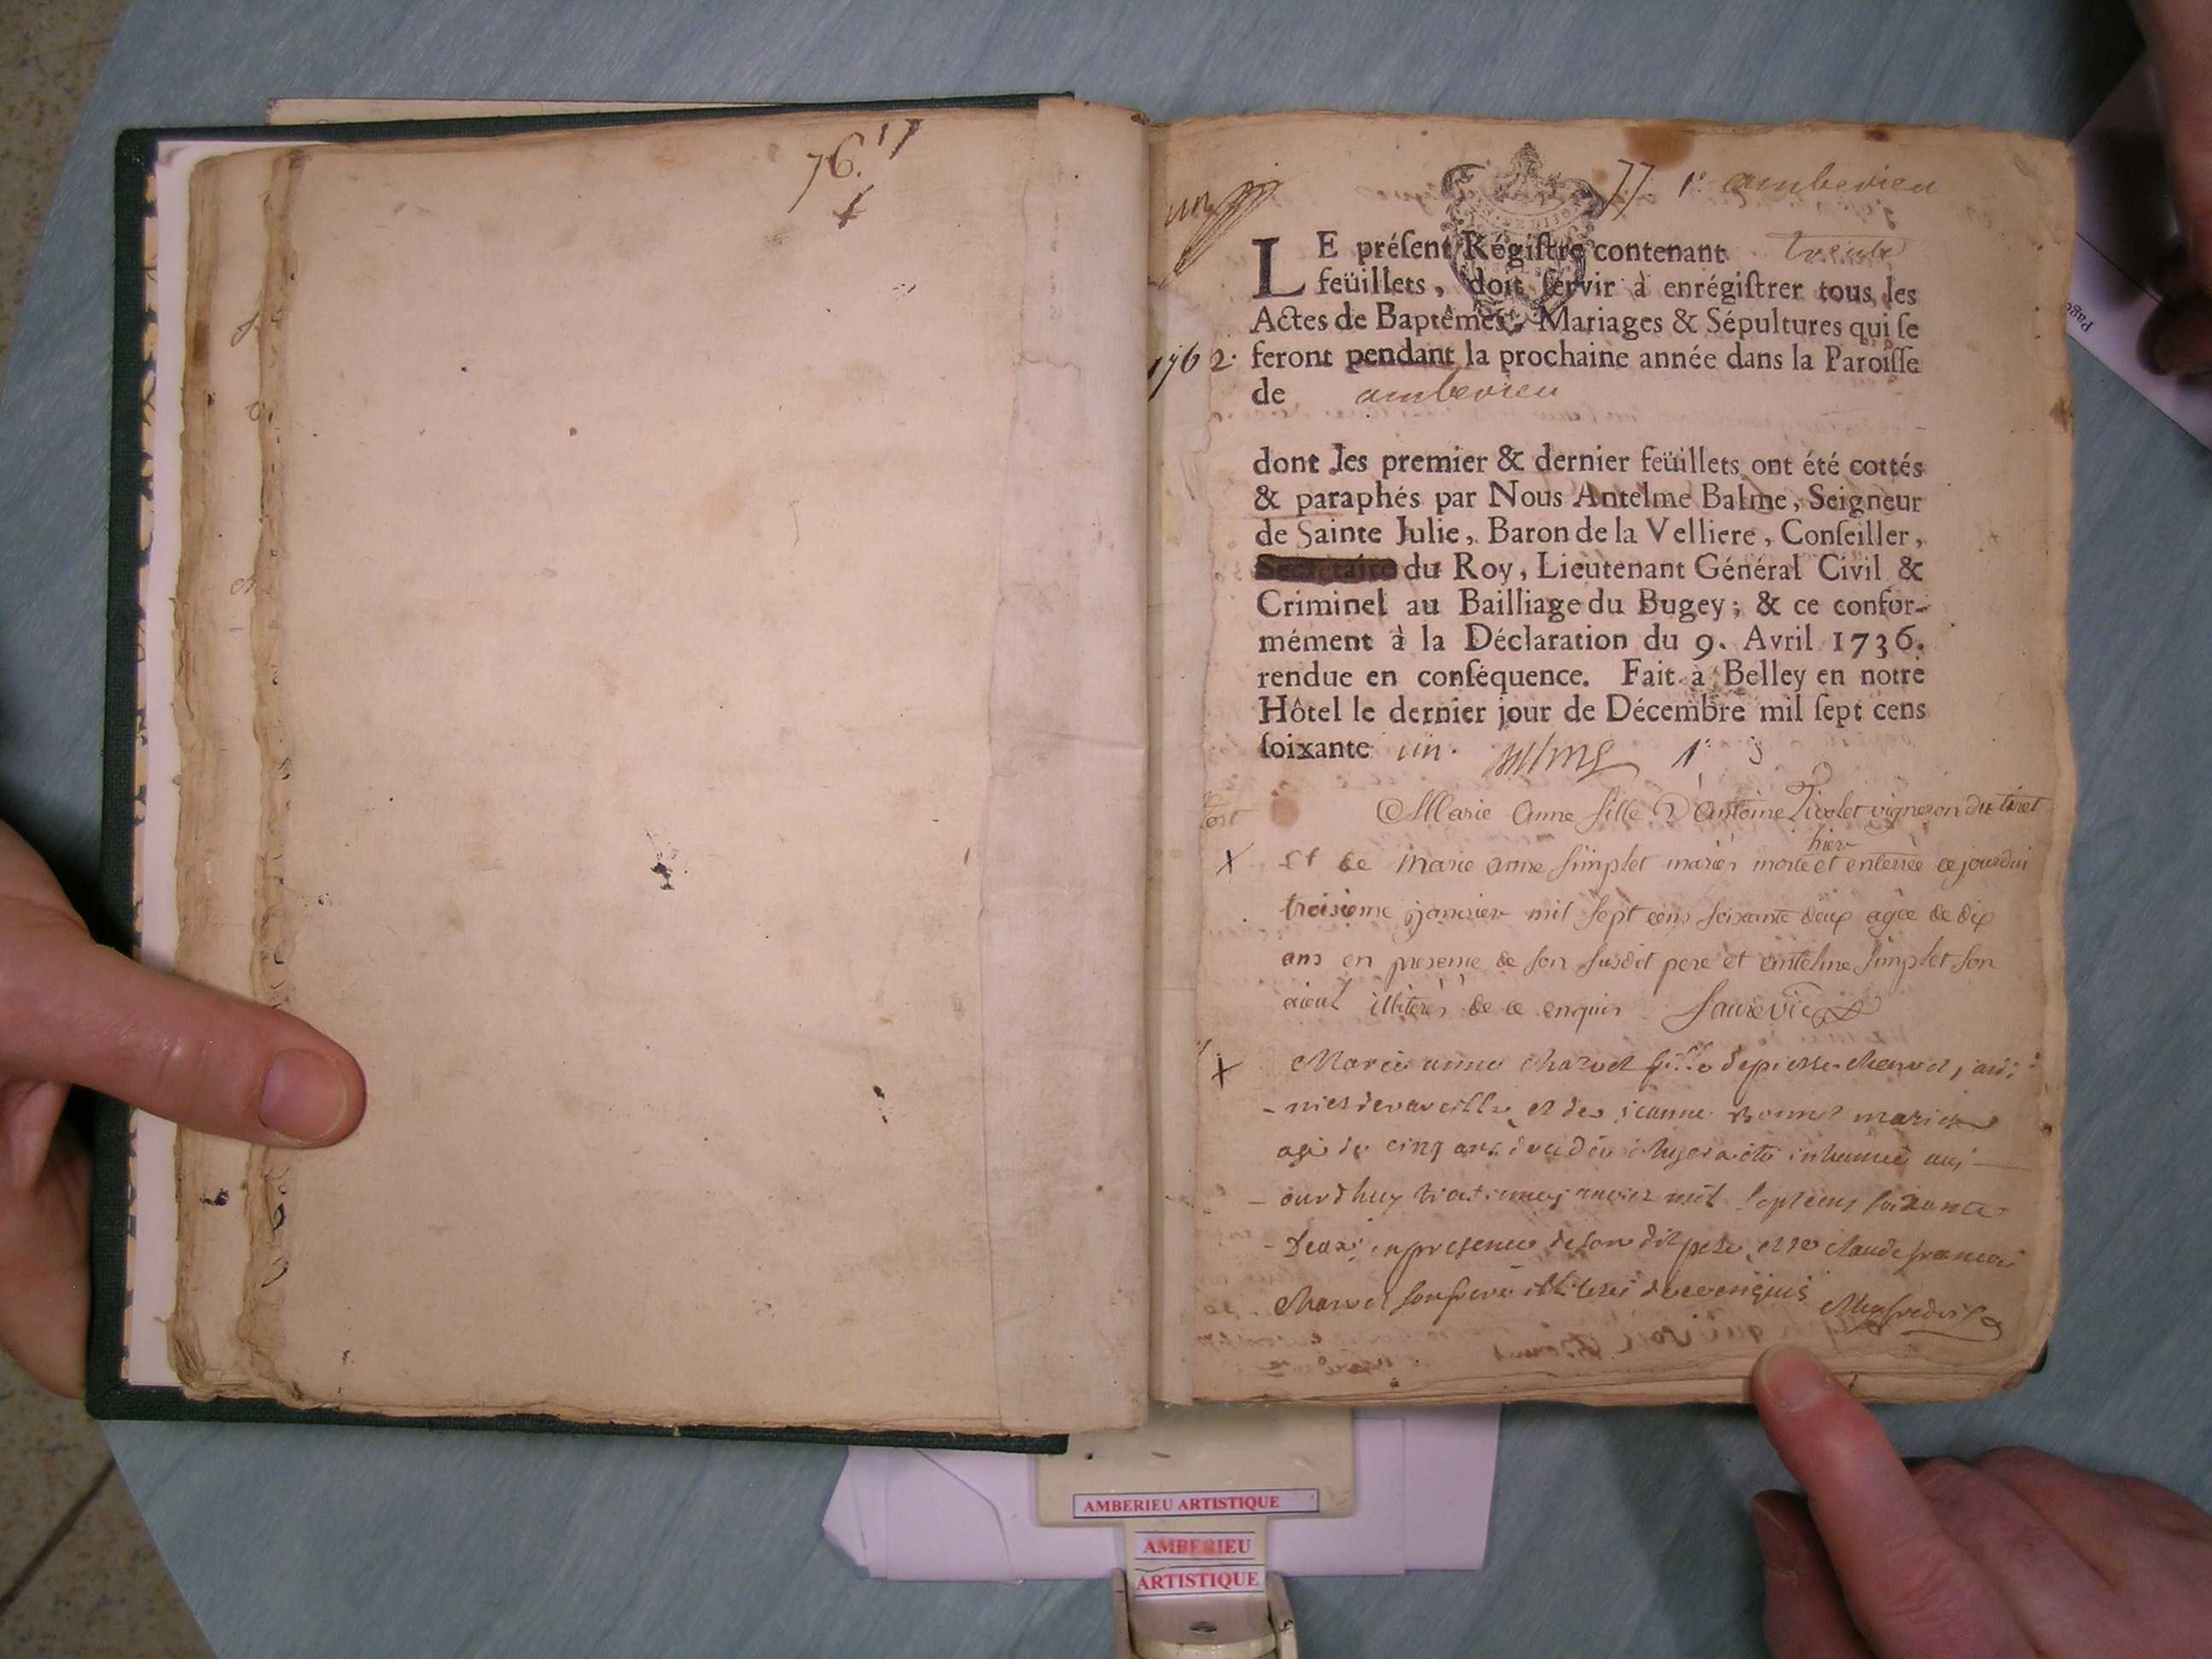 76.
77. 1er amberieu
LE préſent Régiſtre contenant trente
feüillets, doit ſervir à enrégiſtrer tous les
Actes de Baptêmes, Mariages & Sépultures qui ſe
1762. feront pendant la prochaine année dans la Paroiſſe
de amberieu
dont les premier & dernier feüillets ont été cottés
& paraphés par Nous Antelme Balme, Seigneur
de Sainte Julie, Baron de la Velliere, Conſeiller,
Secretaire du Roy, Lieutenant Général Civil &
Criminel au Bailliage du Bugey; & ce confor-
mément à la Déclaration du 9. Avril 1736.
rendue en conſéquence. Fait à Belley en notre
Hôtel le dernier jour de Décembre mil ſept cens
ſoixante un.
Marie Anne fille D'Antoine vigneron du tiret
hier
et de Marie anne Simplet mariés morte et enterrée ce jourdui
troisieme janvier mil sept cens soixante deux agée de dix
ans en presence de son susdit pere et antelme Simplet son
aieul illiterés de ce enquis
Marie anne Charvet fille de pierre Charvet jardi
-nier de vareille et de jeanne Bonnet mariés
agée de cinq ans decedée a été inhumée auj
-ourdhuy troisieme janvier mil sept cens soixante
-Deux en presence de son dit pere et de claude francois
Charvet son frere illiterés de ce enquis
AMBERIEU ARTISTIQUE
AMBERIEU
ARTISTIQUE
Page